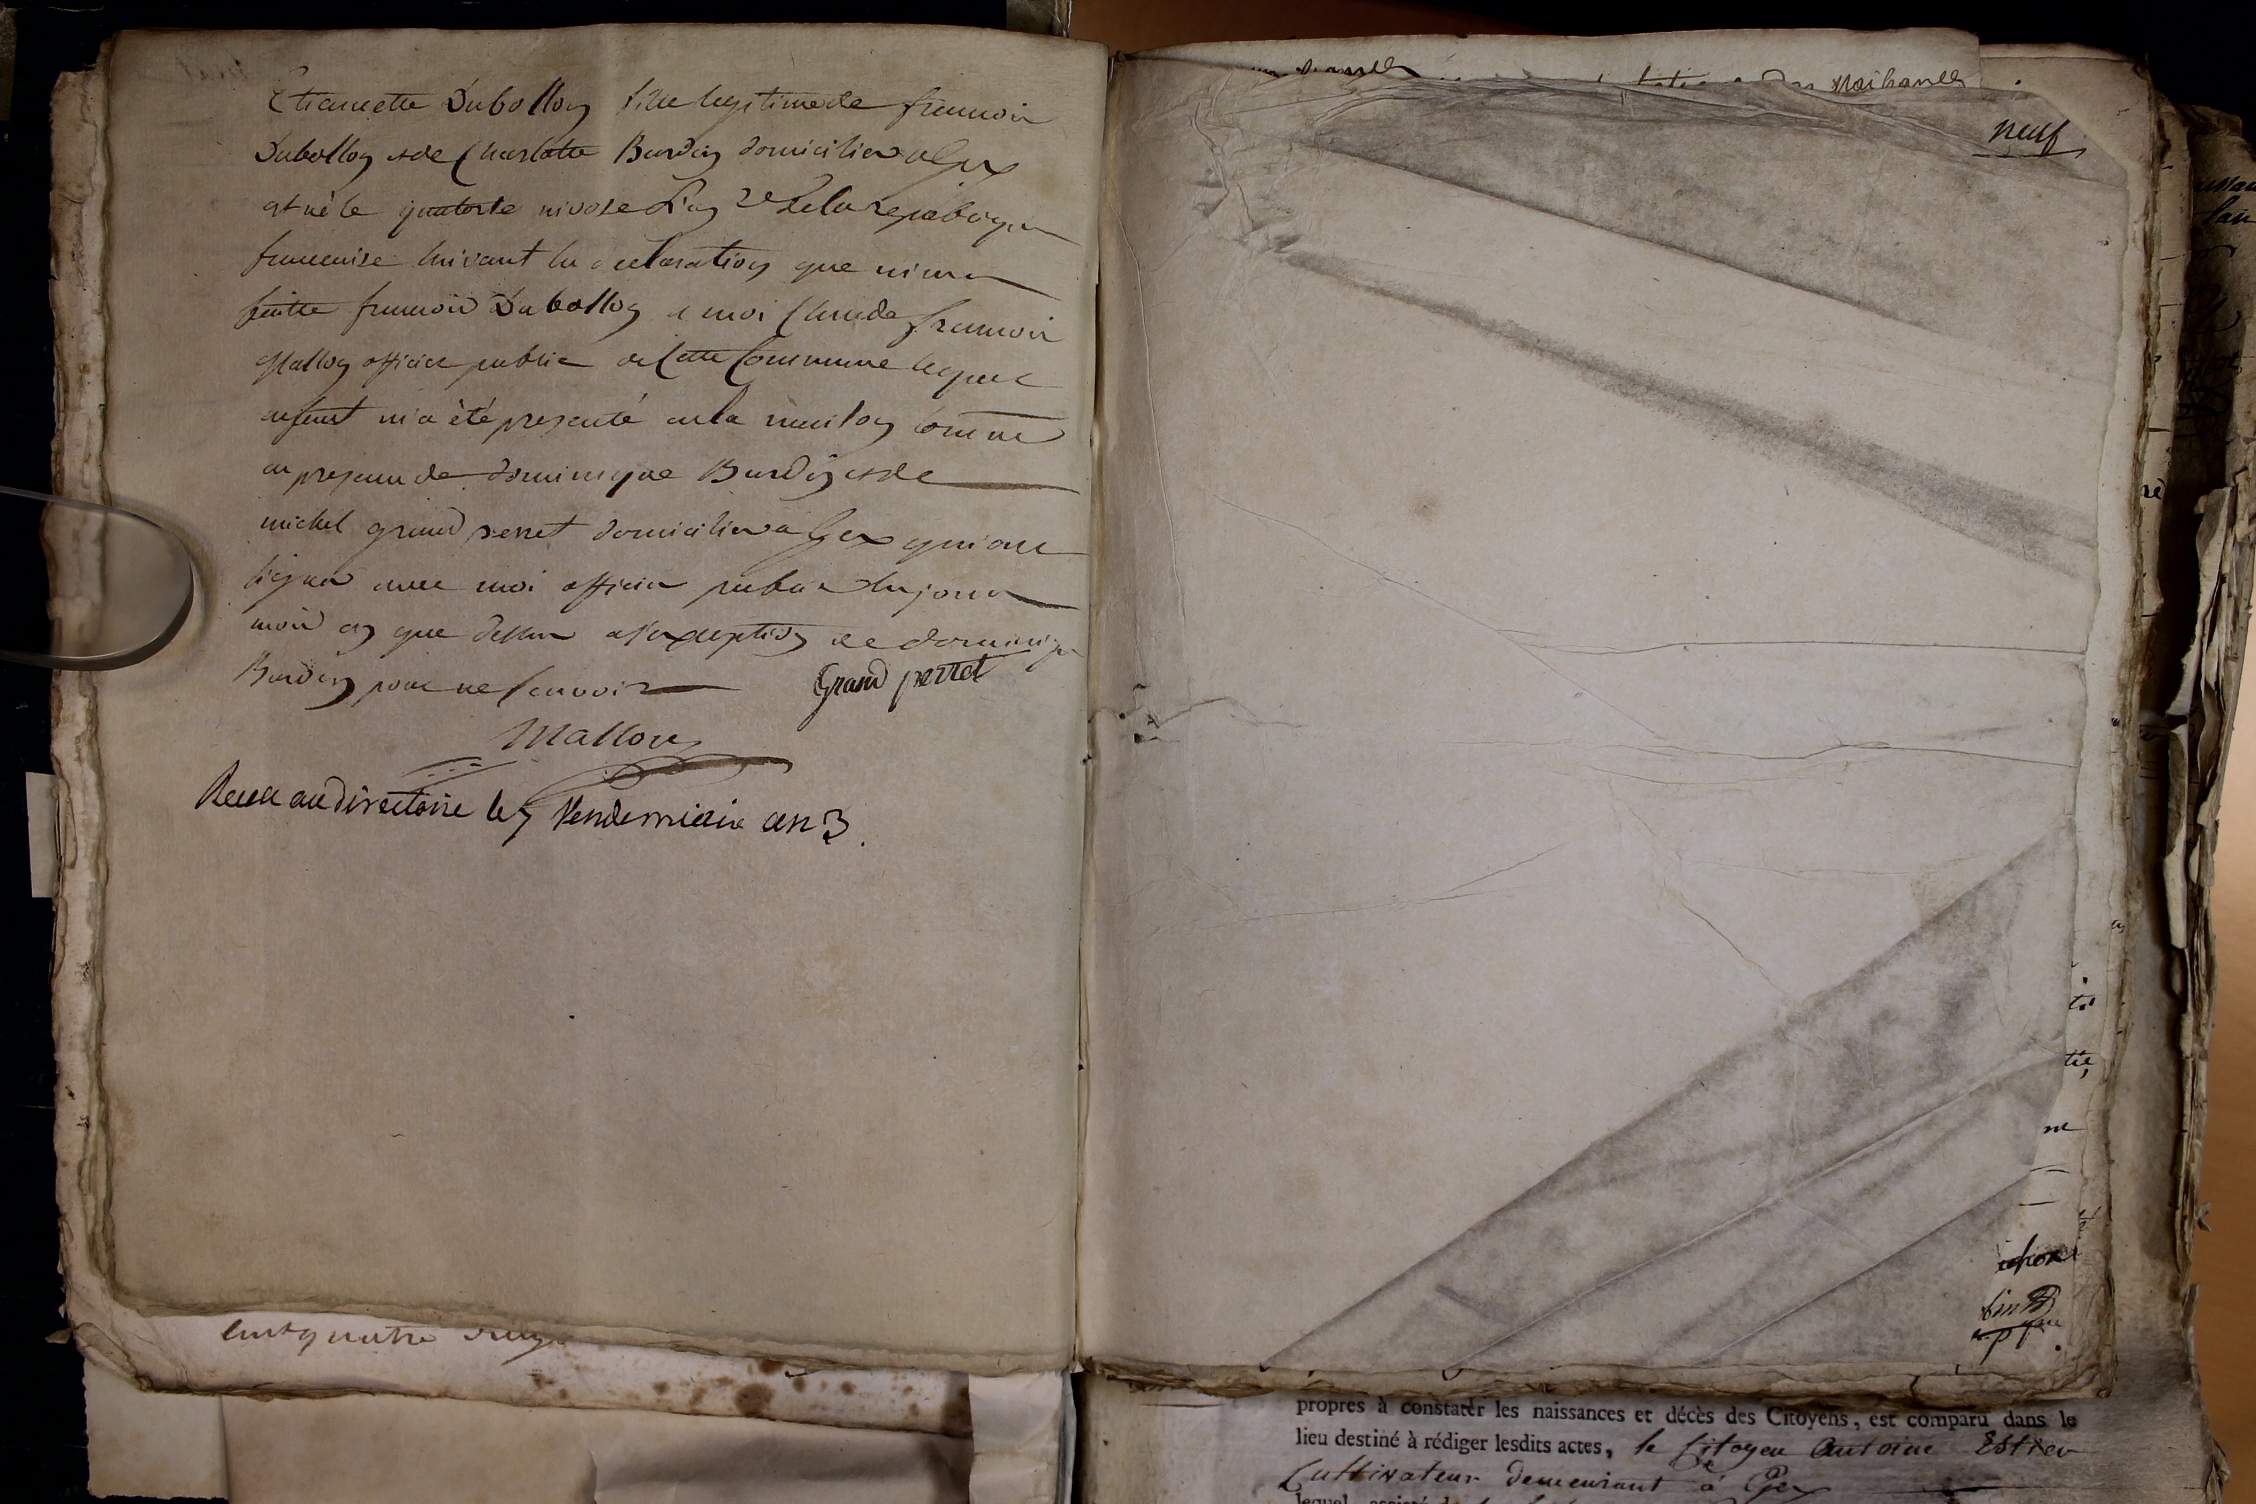 Etiennette Dubolloz fille legitime de francois
Dubolloz et de Charlotte Burdin domicilier a Gex
est né le quatorze nivose L'an 2e de la republique
francaise suivant la declaration que m'en a
faitte francois Dubolloz a moi Claude francois
Malloz officier public de Cette Commune lequel
enfent m'a été presenté en la maison Comune
en presence de dominique Burdin et de
michel grand perret domicilier a Gex qui ont
signer avec moi officier public du jour
mois an que dessu a l'exception de dominique
Burdin pour ne scavoir
Grand perret
Malloz
Reçu au directoire le 7 Vendemiaire an 3.
naissances
neuf
cent quatre vingt
propres à constater les naissances et décès des Citoyens, est comparu dans le
lieu destiné à rédiger lesdits actes, le Citoyen Antoine
Cultivateur demeurant à Gex
lequel